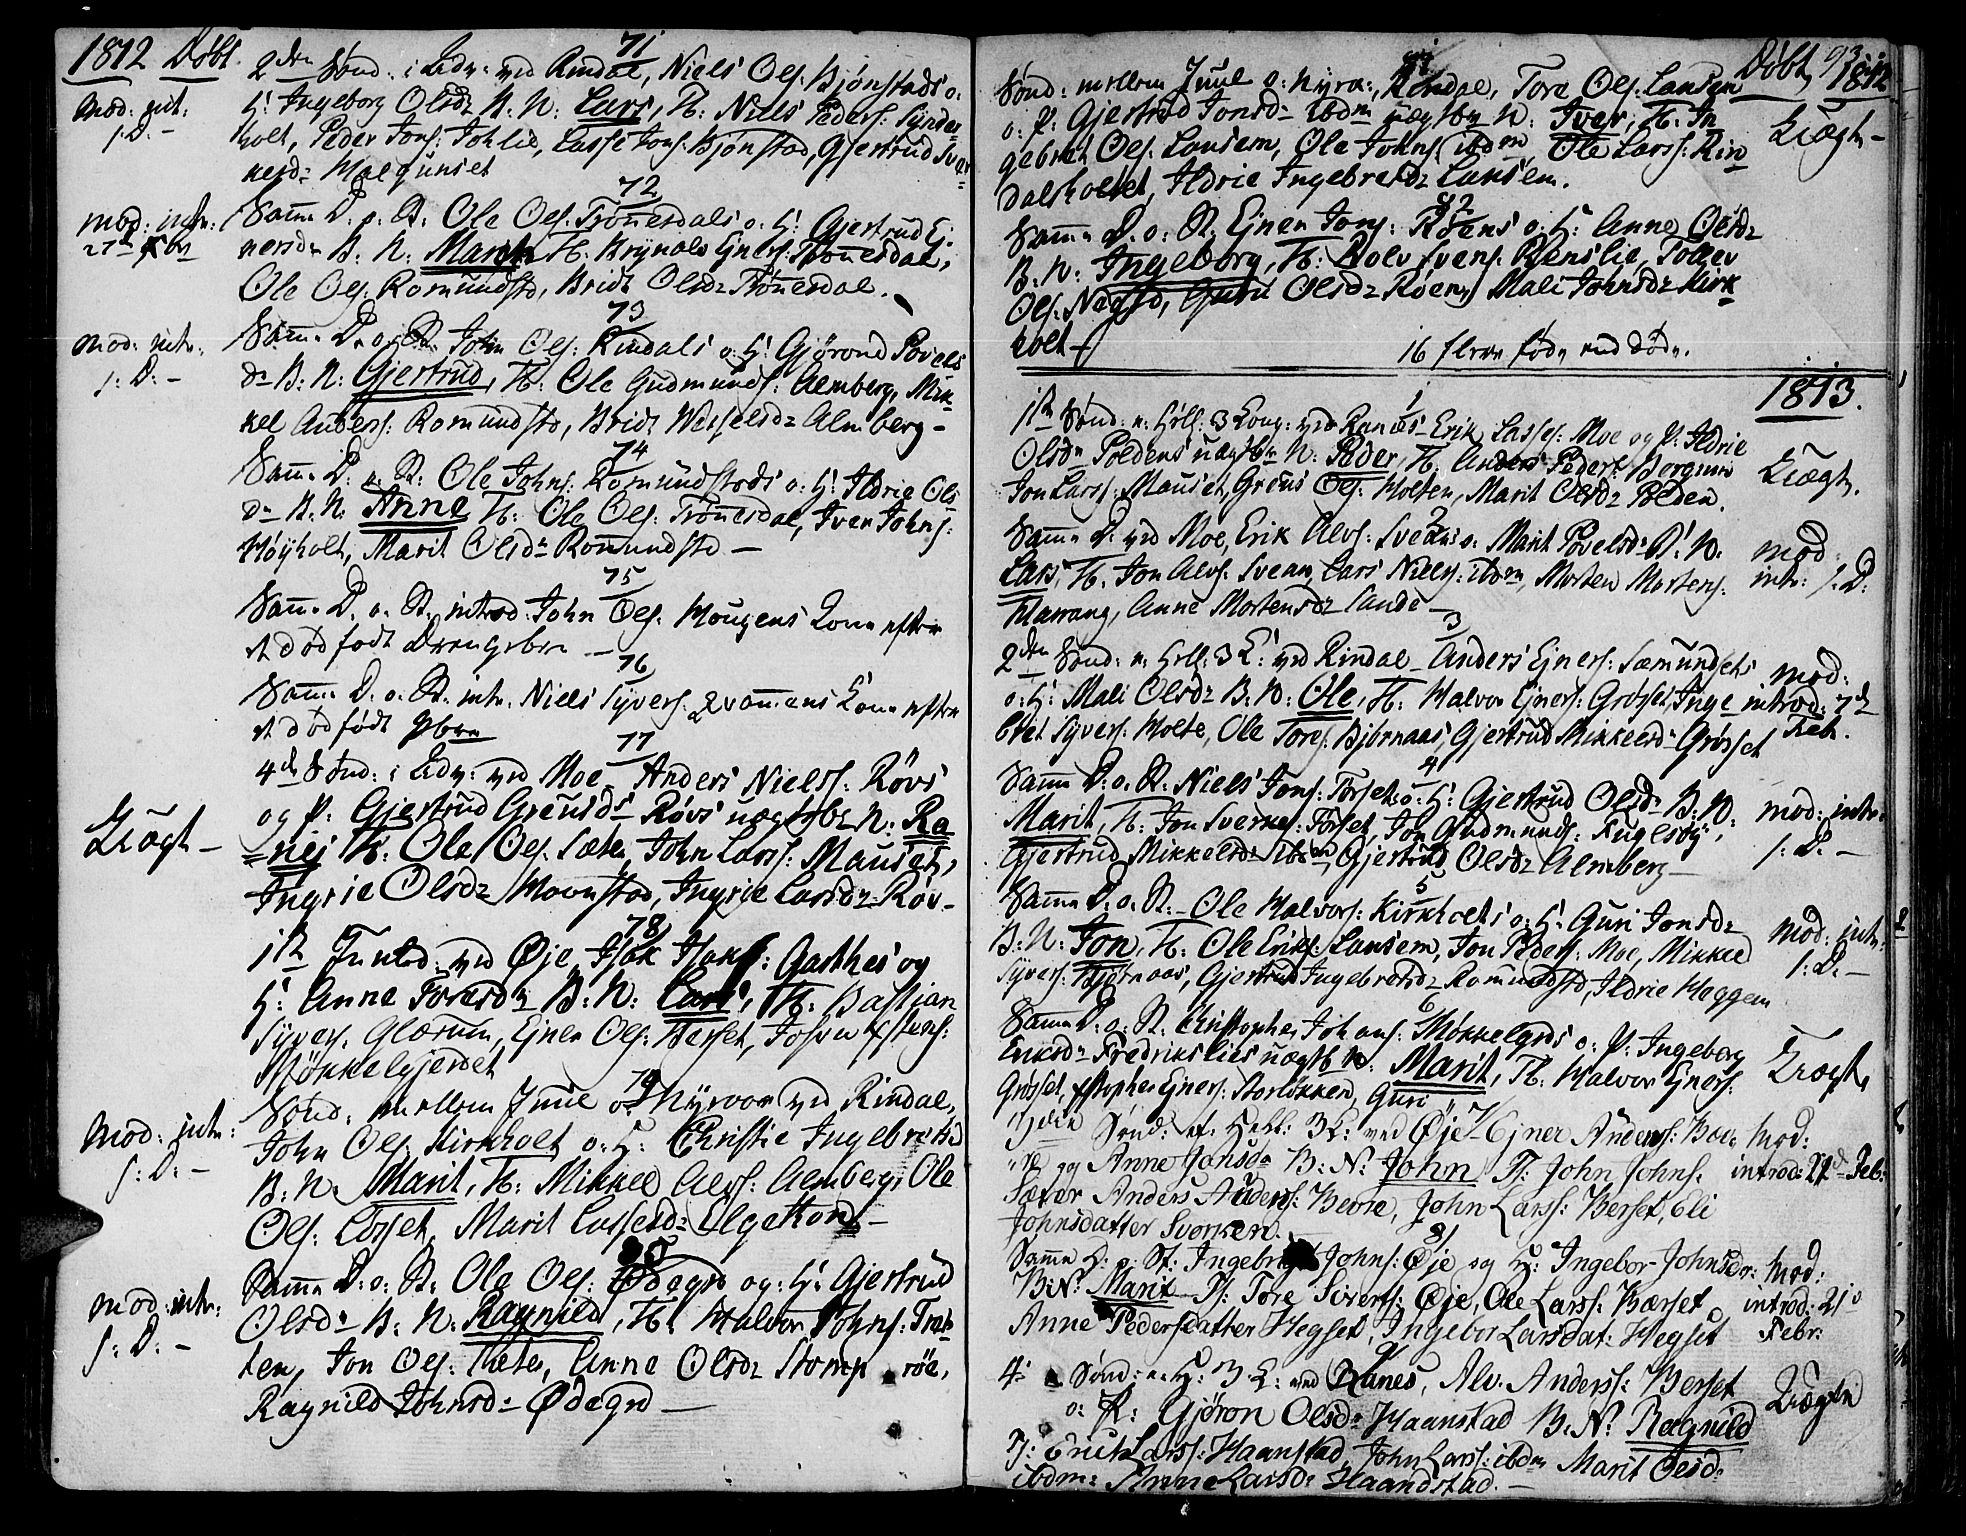 1812 Døbt.
71
2den Sønd: i Adv: ved Rindal, Niels Ols: Bjønstads o:
H: Ingeborg Olsd: B. N: Lars, F: Niels Peders: Synder
holt, Peder Jons: Johlie, Lasse Jons: Bjønstad, Gjertrud Sver
kesd: Halgunset
mod: int:
s: D: –
72
Samme D. o. St. Ole Ols: Trønesdals o: H: Gjertrud Ej
nersd: B. N: Marit F: Brynild Ejners: Trønesdal,
Ole Ols: Romundstd, Bridt Olsd: Trønesdal.
mod: intr:
73
Samme D. o. St. John Ols: Rindals o: H: Gjørond Povels
d: B: N: Gjertrud, F: Ole Gudmunds: Almberg, Mik
kel Anders: Romundstd, Bridt Wesselsd: Almberg –
mod: intr:
s: D: –
74
Samme D. o. St. Ole Johns: Romundstads o: H: Ildrie Ols
d: B. N: Anne F: Ole Ols: Trønesdal, Iver Johns:
Høyholt, Marit Olsd: Romundstd –
75
Samme D. o. St. introd: John Ols: Hougens Kone efter
et dødfødt Drengebn –
76
Samme D. o. St. intr. Niels Syvers: Qvammens Kone efter
et dødfødt Pbn
77
4de Sønd: i Adv: ved Moe Anders Nielss: Røvs
og P: Gjertrud Greusd: Røvs uægtebn N: Ra
nej F: Ole Ols: Sæter, John Larss: Mauset,
Ingrie Olsd: Moenstad, Ingrie Larsd: Røv –
Uægt –
78
1ste Juuled: ved Øje, Isak Isaks: Garthes og
H: Anne Toresd: B: N: Lars, F: Bastian
Syvers: Glærum, Ejner Ols: Hesset, Johan
Møkkelgjerdet
79
Sønd: mellem Juul o: Nyaar ved Rindal,
John Ols: Kirkholt o: H: Christie Ingebretsd
B: N. Marit, F: Mikkel Alfs: Almberg, Ole
Ols: Losset, Marit Lassesd: Elgetton –
mod: intr:
s: D: –
80
Samme D: o: St: Ole Ols: Ødegrd og: H: Gjertrud
Olsd: B: N: Ragnild, F: Halvor Johns: Tral
ten, Jon Ols: Sæter, Anne Olsd: Stomprøe,
Ragnild Johnsd: Ødegrd –
mod: intr:
s: D: –
Døbt 93.
1812
81
Sønd: mellem Juul o: Nyra: Rindal, Tore Ols: Lansem
o: P: Gjertrud Jonsd: ibdm uægtbn N: Iver, F: In
gebret Ols: Lansem, Ole Johns: ibdm, Ole Larss: Rin
dalsholtet, Ildrie Ingebretsd: Lansem.
Uægte –
82
Samme D. o: St. Ejner Jons: Røens o: H: Anne Olsd:
B. N: Ingeborg, F: Rolv Svens: Renslie, Tollev
Ols: Negstd, Guru Olsd: Røen, Mali Johnsd: Kirk
holt –
16 flere fødte end døde.
1813.
1
1ste Sønd: e: Hell: 3 Kong: ved Ranæs – Erik Lasses: Moe og P: Ildrie
Olsd: Poldens uægtbn N: Peder, F: Anders Peders: Bergmo
Jon Larss: Mauset, Greus Ols: Holten, Marit Olsd: Polden.
Uægte.
2
Samme D. ved Moe, Erik Alvs: Sveans o: Marit Povelsd: D: N:
Lars, F: Jon Alvs: Svean, Lars Niels: ibdm, Morten Mortens:
Harrang, Anne Mortensd: Sande –
mod:
intr: s: D:
3
2den Sønd: e: Hell: 3 K: ved Rindal – Anders Ejners: Sæmundsets
o: H: Mali Olsd: B: N: Ole, F: Halvor Ejners: Grøsset, Inge
bret Syvers: Holte, Ole Tores: Bjørnaas, Gjertrud Mikkelsd: Grøsset
mod:
introd: 7de
Feb.
4
Samme D. o. St. Niels Jons: Torsets o: H: Gjertrud Olsd: B: N:
Marit, F: Jon Sverkes: Torset, Jon Gudmunds: Fuglsøy,
Gjertrud Mikkelsd: ibdm, Gjertrud Olsd: Almberg –
mod: intr:
s: D: –
5
Samme D. o. St. – Ole Halvors: Kirkholts o: H: Guri Jonsd:
B: N: Jon, F: Ole Eriks: Lansem, Jon Peders: Moe, Mikkel
Syvers: Bjørnaas, Gjertrud Ingebretsd: Romundstd, Ildrie Heggem
mod: intr:
s: D: –
6
Samme D. o: St. Christopher Johans: Møkkelgrds o: P: Ingeborg
Eriksd: Fredrikslies uægtb N: Marit, F: Halvor Ejners:
Grøset, Ejners: Storløkken, Guri
Uægte
7
3die Sønd: ef. Hell: 3 K: ved Øje – Ejner Anderss: Bæ
vre og Anne Jonsd: B: N: John F: John Johns:
Sæter Anders Anderss: Bevre, John Larss: Berset, Eli
Johnsdatter Svorken.
mod:
introd: 21de Feb:
8
Samme D. o. St: Ingebrigt Johns: Øje og H: Ingebor Johnsdr:
B: N: Marit F: Tore Siverts: Øje, Ole Larss: Bærset
Anne Pedersdatter Hegset, Ingebor Larsdat: Hegset
mod:
introd: 21
Febr:
9
4: Sønd: e: H: 3 K: ved Ranes, Alv. Anderss: Berset
o: P: Gjøron Olsd: Haanstad B: N: Ragnild
F: Erick Larss: Haanstad, John Larss: ibdm Marit Olsd:
ibdm: Anne Larsd: Haandstad. –
Uægte